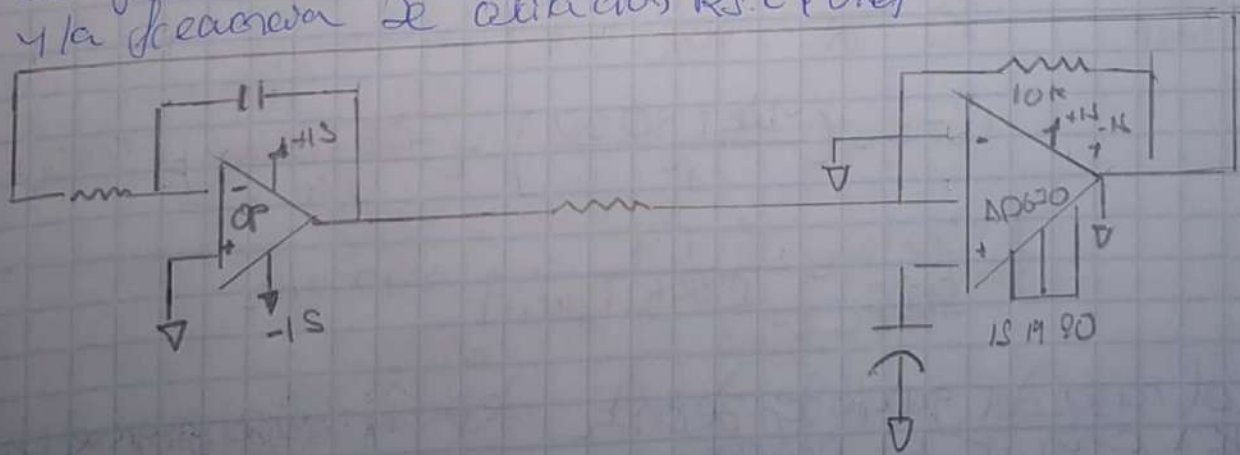 y la frecuencia de
+15
-
OP
+
-15
10k
+15 -15
-
+
AD630
+
15 19 20